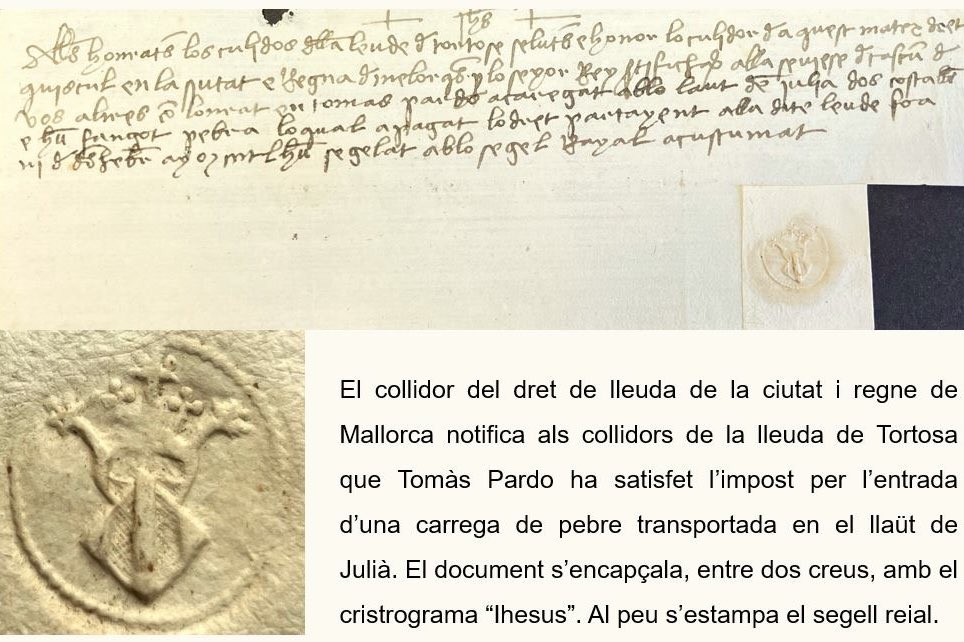 Ihs
honrats los leude d tortose saluts e honor lo culidor d a quest matex dret
en la siutat e Regna d lo seyor Rey alla d
vos altres lonrat en tomas pardo a caregat ab lo laut de julia dos
e hu fangot pebra lo qual a pagat lo dret partayent alla dite leude
segelat ab lo segel Rayal acustumat
El collidor del dret de lleuda de la ciutat i regne de
Mallorca notifica als collidors de la lleuda de Tortosa
que Tomàs Pardo ha satisfet l’impost per l’entrada
d’una carrega de pebre transportada en el llaüt de
Julià. El document s’encapçala, entre dos creus, amb el
cristrograma “Ihesus”. Al peu s’estampa el segell reial.